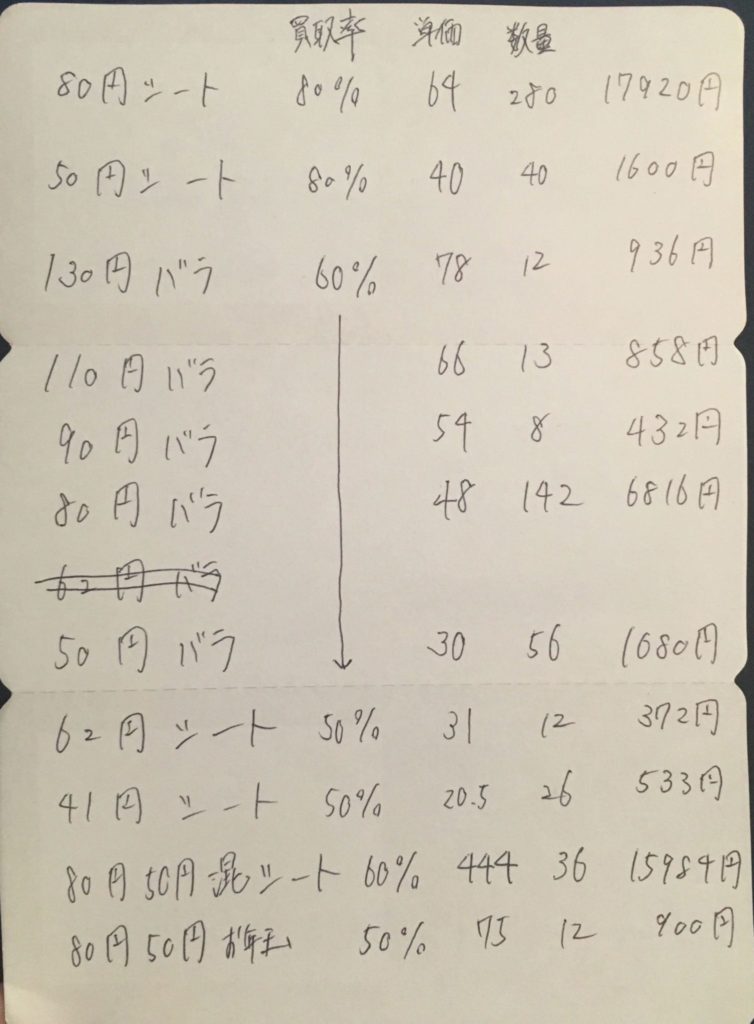 買取率 単価 数量
80円シート 80% 64 280 17920円
50円シート 80% 40 40 1600円
130円バラ 60% 78 12 936円
110円バラ 66 13 858円
90円バラ 54 8 432円
80円バラ 48 142 6816円
62円バラ
50円バラ 30 56 1680円
62円シート 50% 31 12 372円
41円シート 50% 20.5 26 533円
80円50円混シート 60% 444 36 15984円
80円50円お年玉 50% 75 12 900円